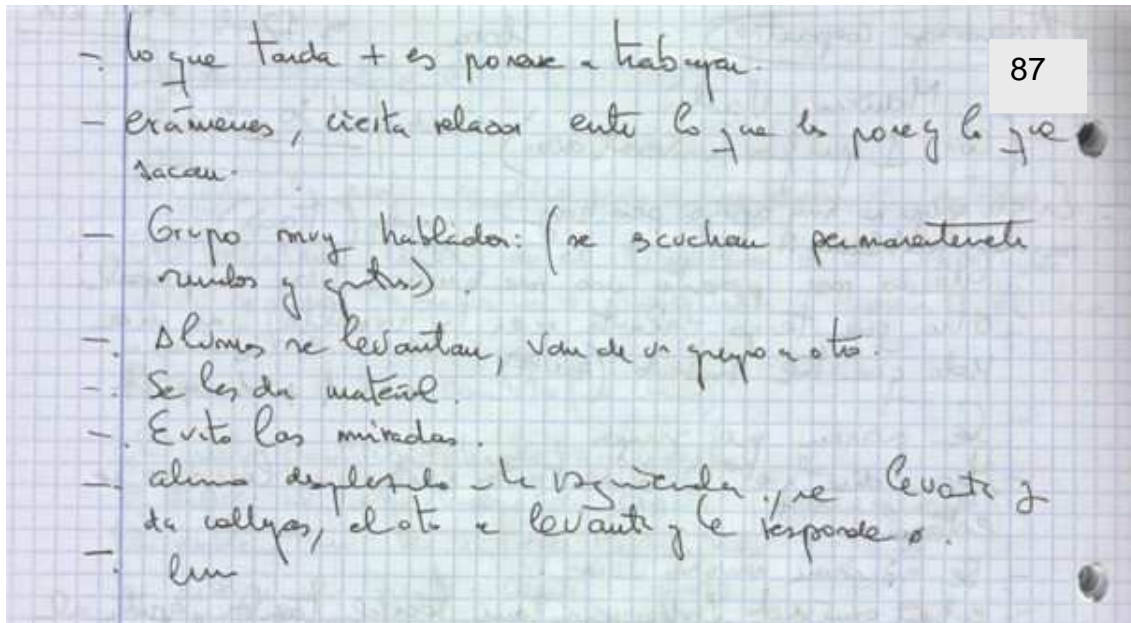 - lo que tarda + es ponerse a trabajar.
87
- exámenes, cierta relacion entre lo que les pone y lo que
sacan.
- Grupo muy hablador: (se escuchan permanentemente
ruidos y gritos).
- Alumnos se levantan, van de un grupo a otro.
- Se les da material.
- Evito las miradas.
- alumno a la izquierda, se levanta y
da collejas, el otro se levanta y le responde.
-